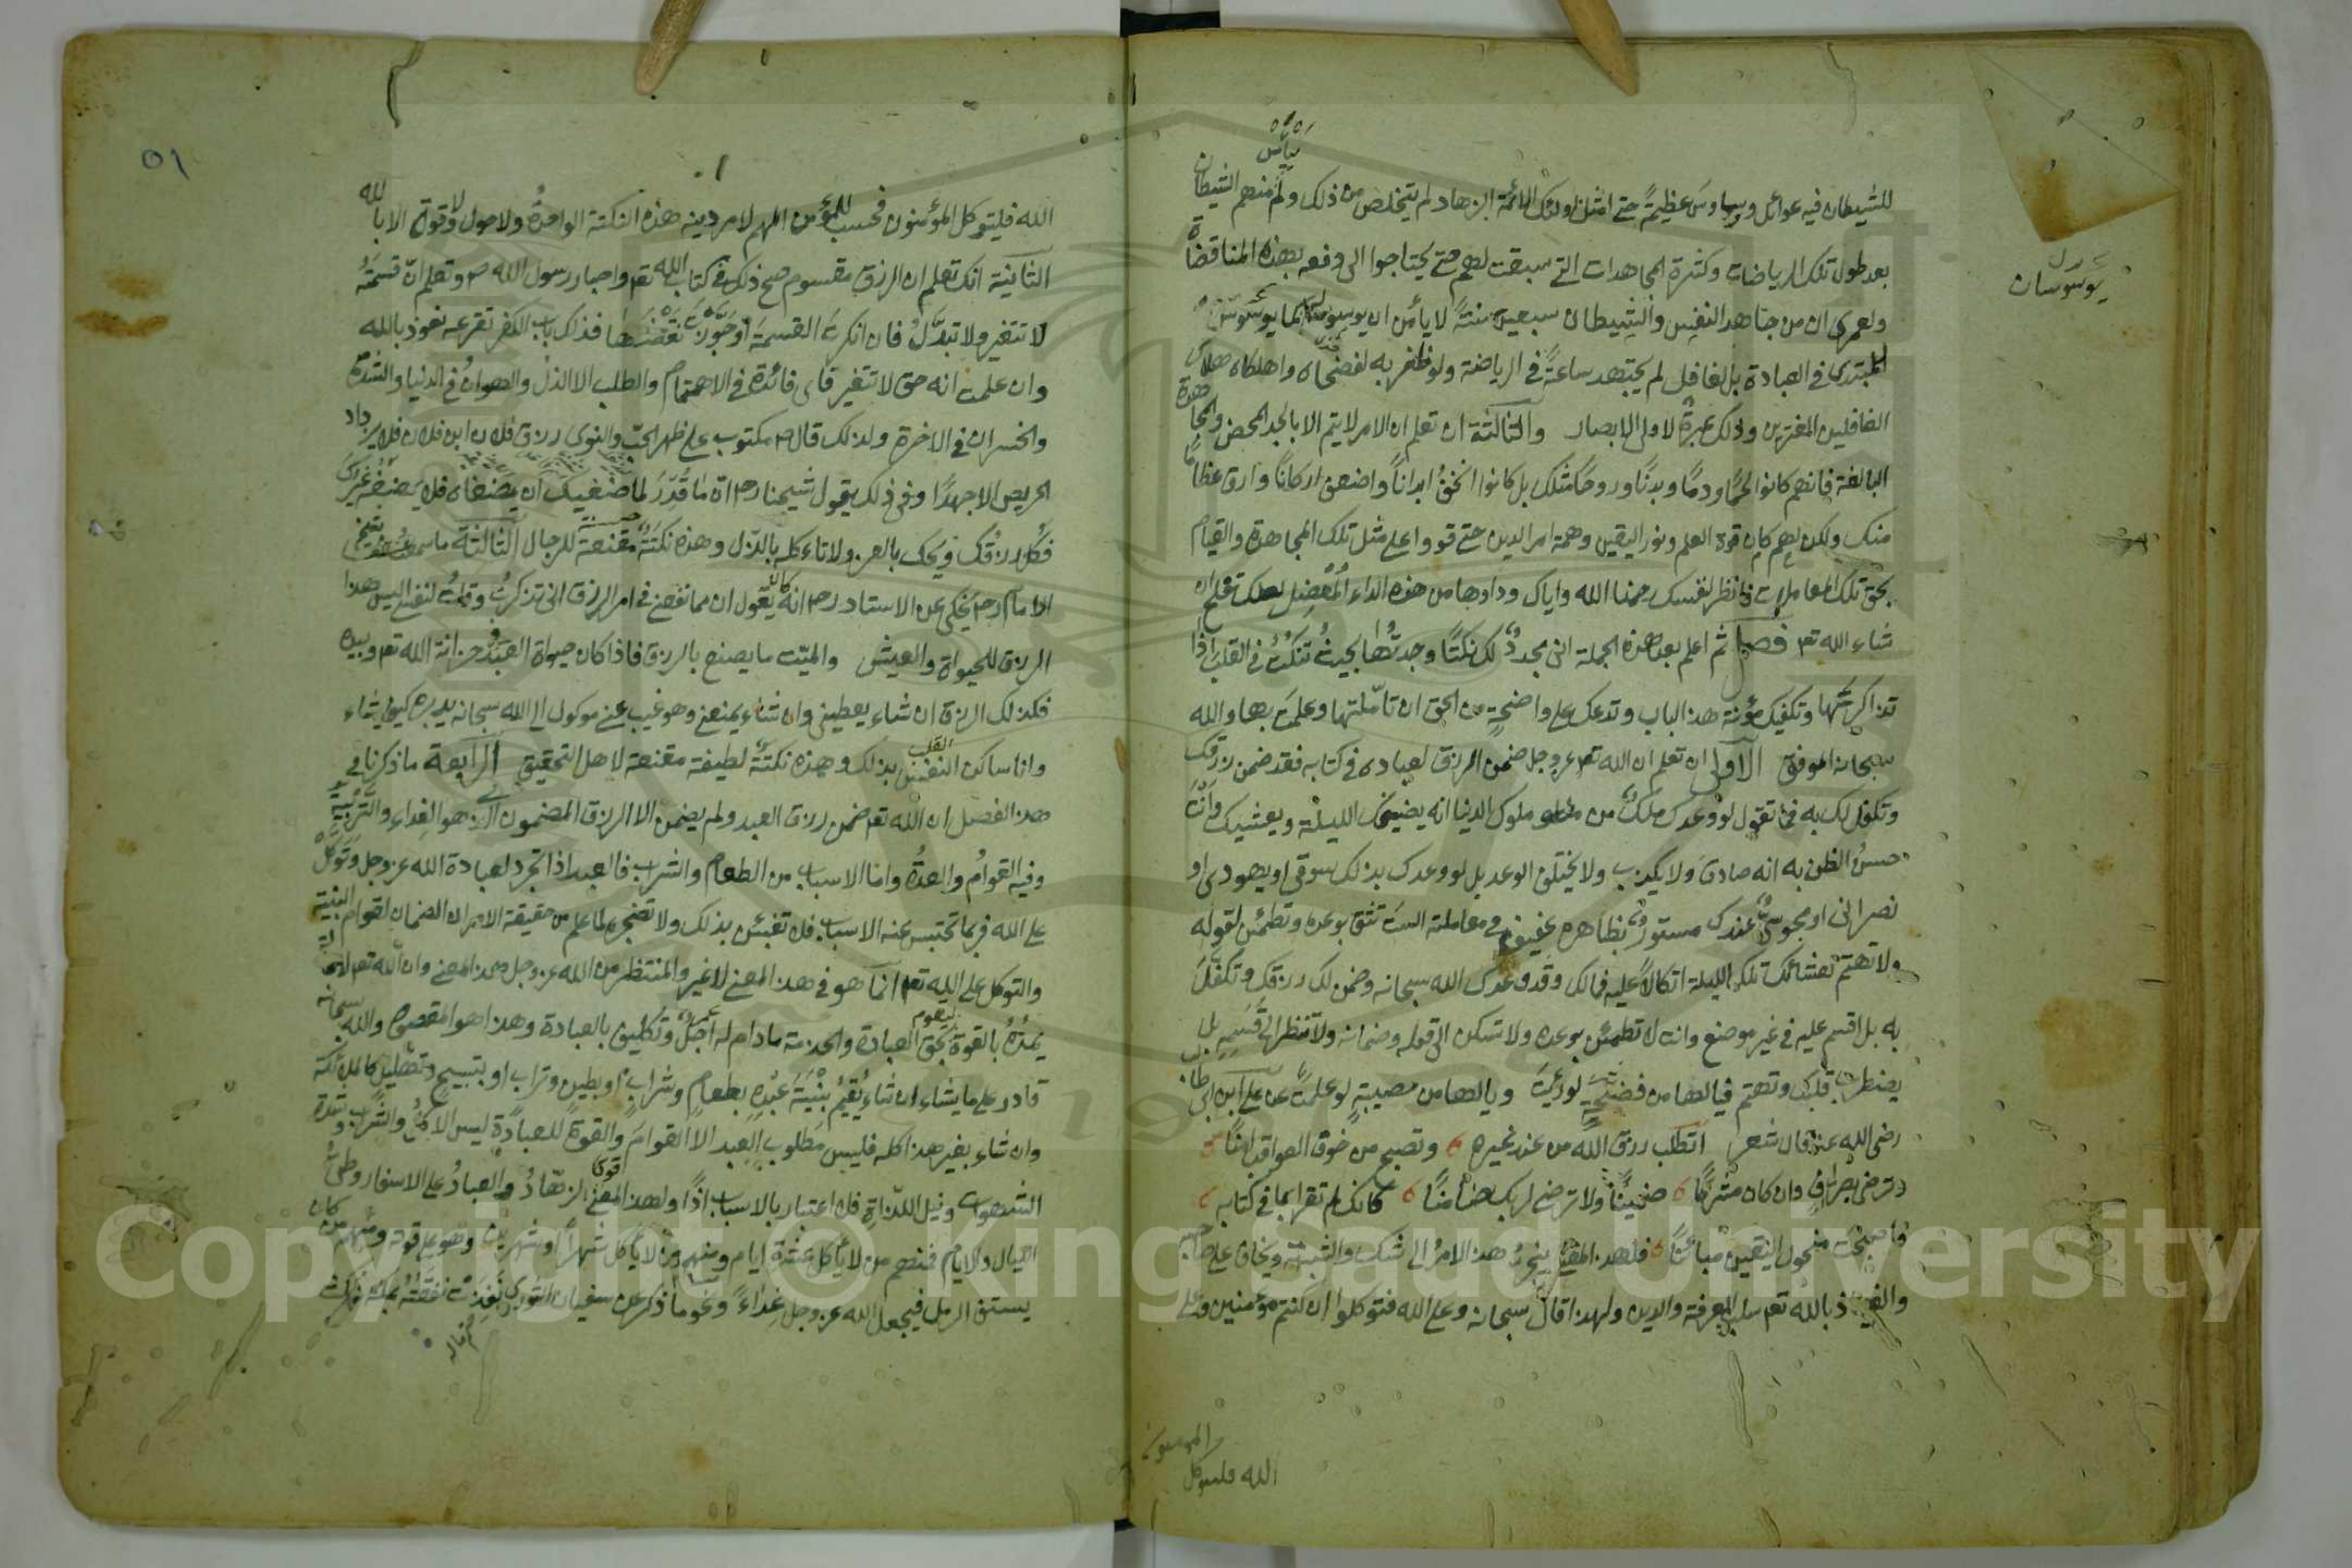 للشيطان فيه غوائل ووساوس عظيمة حتى امثل اولئك الائمة الزهاد لم يتخلص من ذلك ولم ييأس منهم الشيطان
بعد طول تلك الرياضات وكثرة المجاهدات التي سبقت لهم حتى يحتاجوا الى دفعه بهذه المناقضة
ولعمري ان من جاهد النفس والشيطان سبعين سنة لا يأمن ان يوسوسا له كما يوسوس
للمبتدى في العبادة بل لغافل لم يجتهد ساعة في الرياضة ولو ظفر به لفضحاه واهلكاه هلاك
الغافلين المغترين وذلك عبرة لاولى الابصار والثالثة ان تعلم ان الامر لا يتم الا بالجد المحض والمجاهدة
البالغة فانهم كانوا لحما ودما وبدنا وروحا مثلك بل كانوا انحف ابدانا واضعف اركانا وارق عظاما
منك ولكن لهم كان قوة العلم ونور اليقين وهمة امر الدين حتى قووا على مثل تلك المجاهدة والقيام
بحق تلك المعاملات فانظر لنفسك رحمنا الله واياك وداوها من هذه الداء المعضل لعلك تفلح ان
شاء الله تع فصل ثم اعلم بعد هذه الجملة انى مجدد لك نكتا وجدتها بحيث تنكت في القلب اذا
تذاكرتها وتكفيك مؤنة هذا الباب وتدعك على واضحة من الحق ان تأملتها وعلمت بها والله
سبحانه الموفق الاولى ان تعلم ان الله تع عز وجل ضمن الرزق لعباده في كتابه فقد ضمن رزقك
وتكفل لك به فما تقول لو وعدك ملك من ملوك الدنيا انه يضيفك الليلة ويعشيك وانت
حسن الظن به انه صادق ولا يكذب ولا يختلف الوعد بل لو وعدك بذلك سوقى او يهودى او
نصرانى او مجوسى عندك مستور بظاهره عفيف في معاملته الست تثق بوعده وتطمئن لقوله
ولا تهتم لعشائك تلك الليلة اتكالا عليه فما لك وقد وعدك الله سبحانه وضمن لك رزقك وتكفل
به بل اقسم عليه في غير موضع وانت لا تطمئن بوعده ولا تسكن الى قوله وضمانه ولا تنظر الى قسمه بل
يضطرب قلبك وتهتم فيالها من فضيحة لو رعيت ويالها من مصيبة لو علمت عن على ابن ابى طالب
رضى الله عنه قال شعر اتطلب رزق الله من عند غيره وتصبح من خوف العواقب امنا
وترضى بصراف وان كان مشركا ضمينا ولا ترضى لربك ضامنا كانك لم تقرأ بما في كتابه
فاصبحت منحول اليقين مباينا فلهذا المعنى ينجر هذا الامر الى شك والشبهة ويخاف على صاحبه
والعياذ بالله تع سلب المعرفة والدين ولهذا قال سبحانه وعلى الله فتوكلوا ان كنتم مؤمنين وعلى
الله فليتوكل المؤمنون
يوسوسان
٥١
الله فليتوكل المؤمنون فحسب للمؤمن المهم لامر دينه هذه النكتة الواحدة ولا حول ولا قوة الا بالله
الثانية انك تعلم ان الرزق مقسوم صح ذلك في كتاب الله تع واخبار رسول الله ص وتعلم ان قسمته
لا تتغير ولا تبدل فان انكرت القسمة او جوزت نقضها فذلك باب الكفر تقرعه نعوذ بالله
وان علمت انه حق لا تتغير فاى فائدة في الاهتمام والطلب الا الذل والهوان في الدنيا والشدة
والخسران في الاخرة ولذلك قال ص مكتوب على ظهر الحب والنوى رزق فلان ابن فلان فلا يزداد
الحريص الا جهدا وفى ذلك يقول شيخنا رح ان ما قدر لماضغيك ان يمضغاه فلا يمضغه غيرك
فكل رزقك ويحك بالعز ولا تاءكله بالذل وهذه نكتة مقنعة للرجال الثالثة ما سمعت شيخى
الامام رح يحكى عن الاستاد رح انه كان يقول ان مما نفعنى في امر الرزق انى تذكرت وقلت لنفسى اليس هذا
الرزق للحيوة والعيش والميت ما يصنع بالرزق فاذا كان حيوة العبد في خزانة الله تع وبيده
فكذلك الرزق ان شاء يعطينى وان شاء يمنعنى وهو غيب عنى موكول الى الله سبحانه يدبره كيف يشاء
وانا ساكن القلب النفس بذلك وهذه نكتة لطيفة مقنعة لاهل التحقيق الرابعة ما ذكرنا في
هذا الفصل ان الله تع ضمن رزق العبد ولم يضمن الا الرزق المضمون الذى هو الغذاء والتربية
وفيه القوام والعدة واما الاسباب من الطعام والشراب فالعبد اذا تجرد لعبادة الله عز وجل وتوكل
على الله فربما تحتبس عنه الاسباب فلا تعبئن بذلك ولا تضجر لما علم من حقيقة الامر ان الضمان لقوام البنية
والتوكل على الله تع انما هو في هذا المعنى لا غير والمنتظر من الله عز وجل هذا المعنى وان الله تع
يمده بالقوة ليقوم بحق العبادة والخدمة ما دام له اجل وتكليف بالعبادة وهذا هو المقصود والله سبحانه
قادر على ما يشاء ان شاء يقيم بنية عبده بطعام وشراب او بطين وتراب او بتسبيح وتهليل كالملائكة
وان شاء بغير هذا كله فليس مطلوب العبد الا القوام والقوة للعبادة ليس الاكل والشرب وشدة
الشهوات ونيل اللذاة فلا اعتبار بالاسباب اذا ولهذا المعنى قوى الزهاد والعباد على الاسفار وطى
الليال والايام فمنهم من لا يأكل عشرة ايام ومنهم من لا يأكل شهرا وشهرين وهو على قوته ومنهم من كان
يستف الرمل فيجعل الله عز وجل غذاء ونحو ما ذكر عن سفيان الثورى نفدت نفقته بمكة فمكث